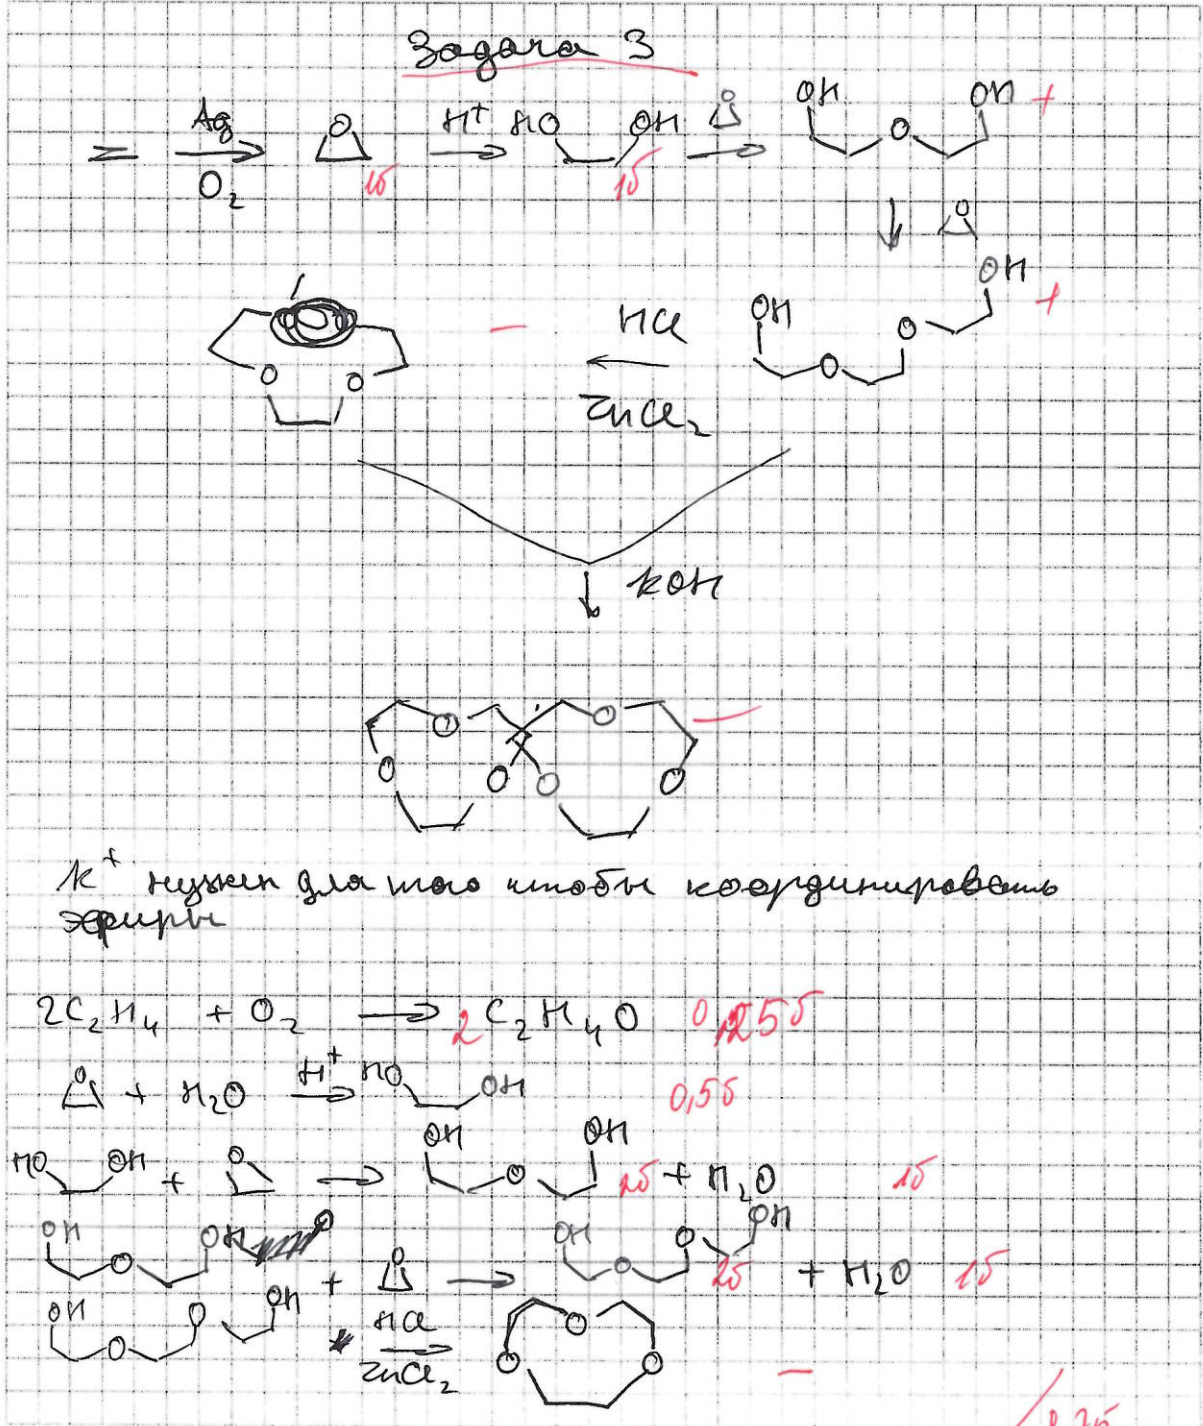 Задача 3
Ag
O₂
O
1б
H⁺
HO OH
1б
O
OH O OH +
O
OH
O
O
OH +
HCl
ZnCl₂
−
O O
KOH
O O
O O O O
−
K⁺ нужен для того чтобы координировать
эфиры
2C₂H₄ + O₂ → 2 C₂H₄O 0,25б
O + H₂O H⁺ → HO OH 0,5б
HO OH + O → OH O OH 2б + H₂O 1б
OH O OH + O → OH O O OH 2б + H₂O 1б
OH O O OH HCl → O O O
ZnCl₂
−